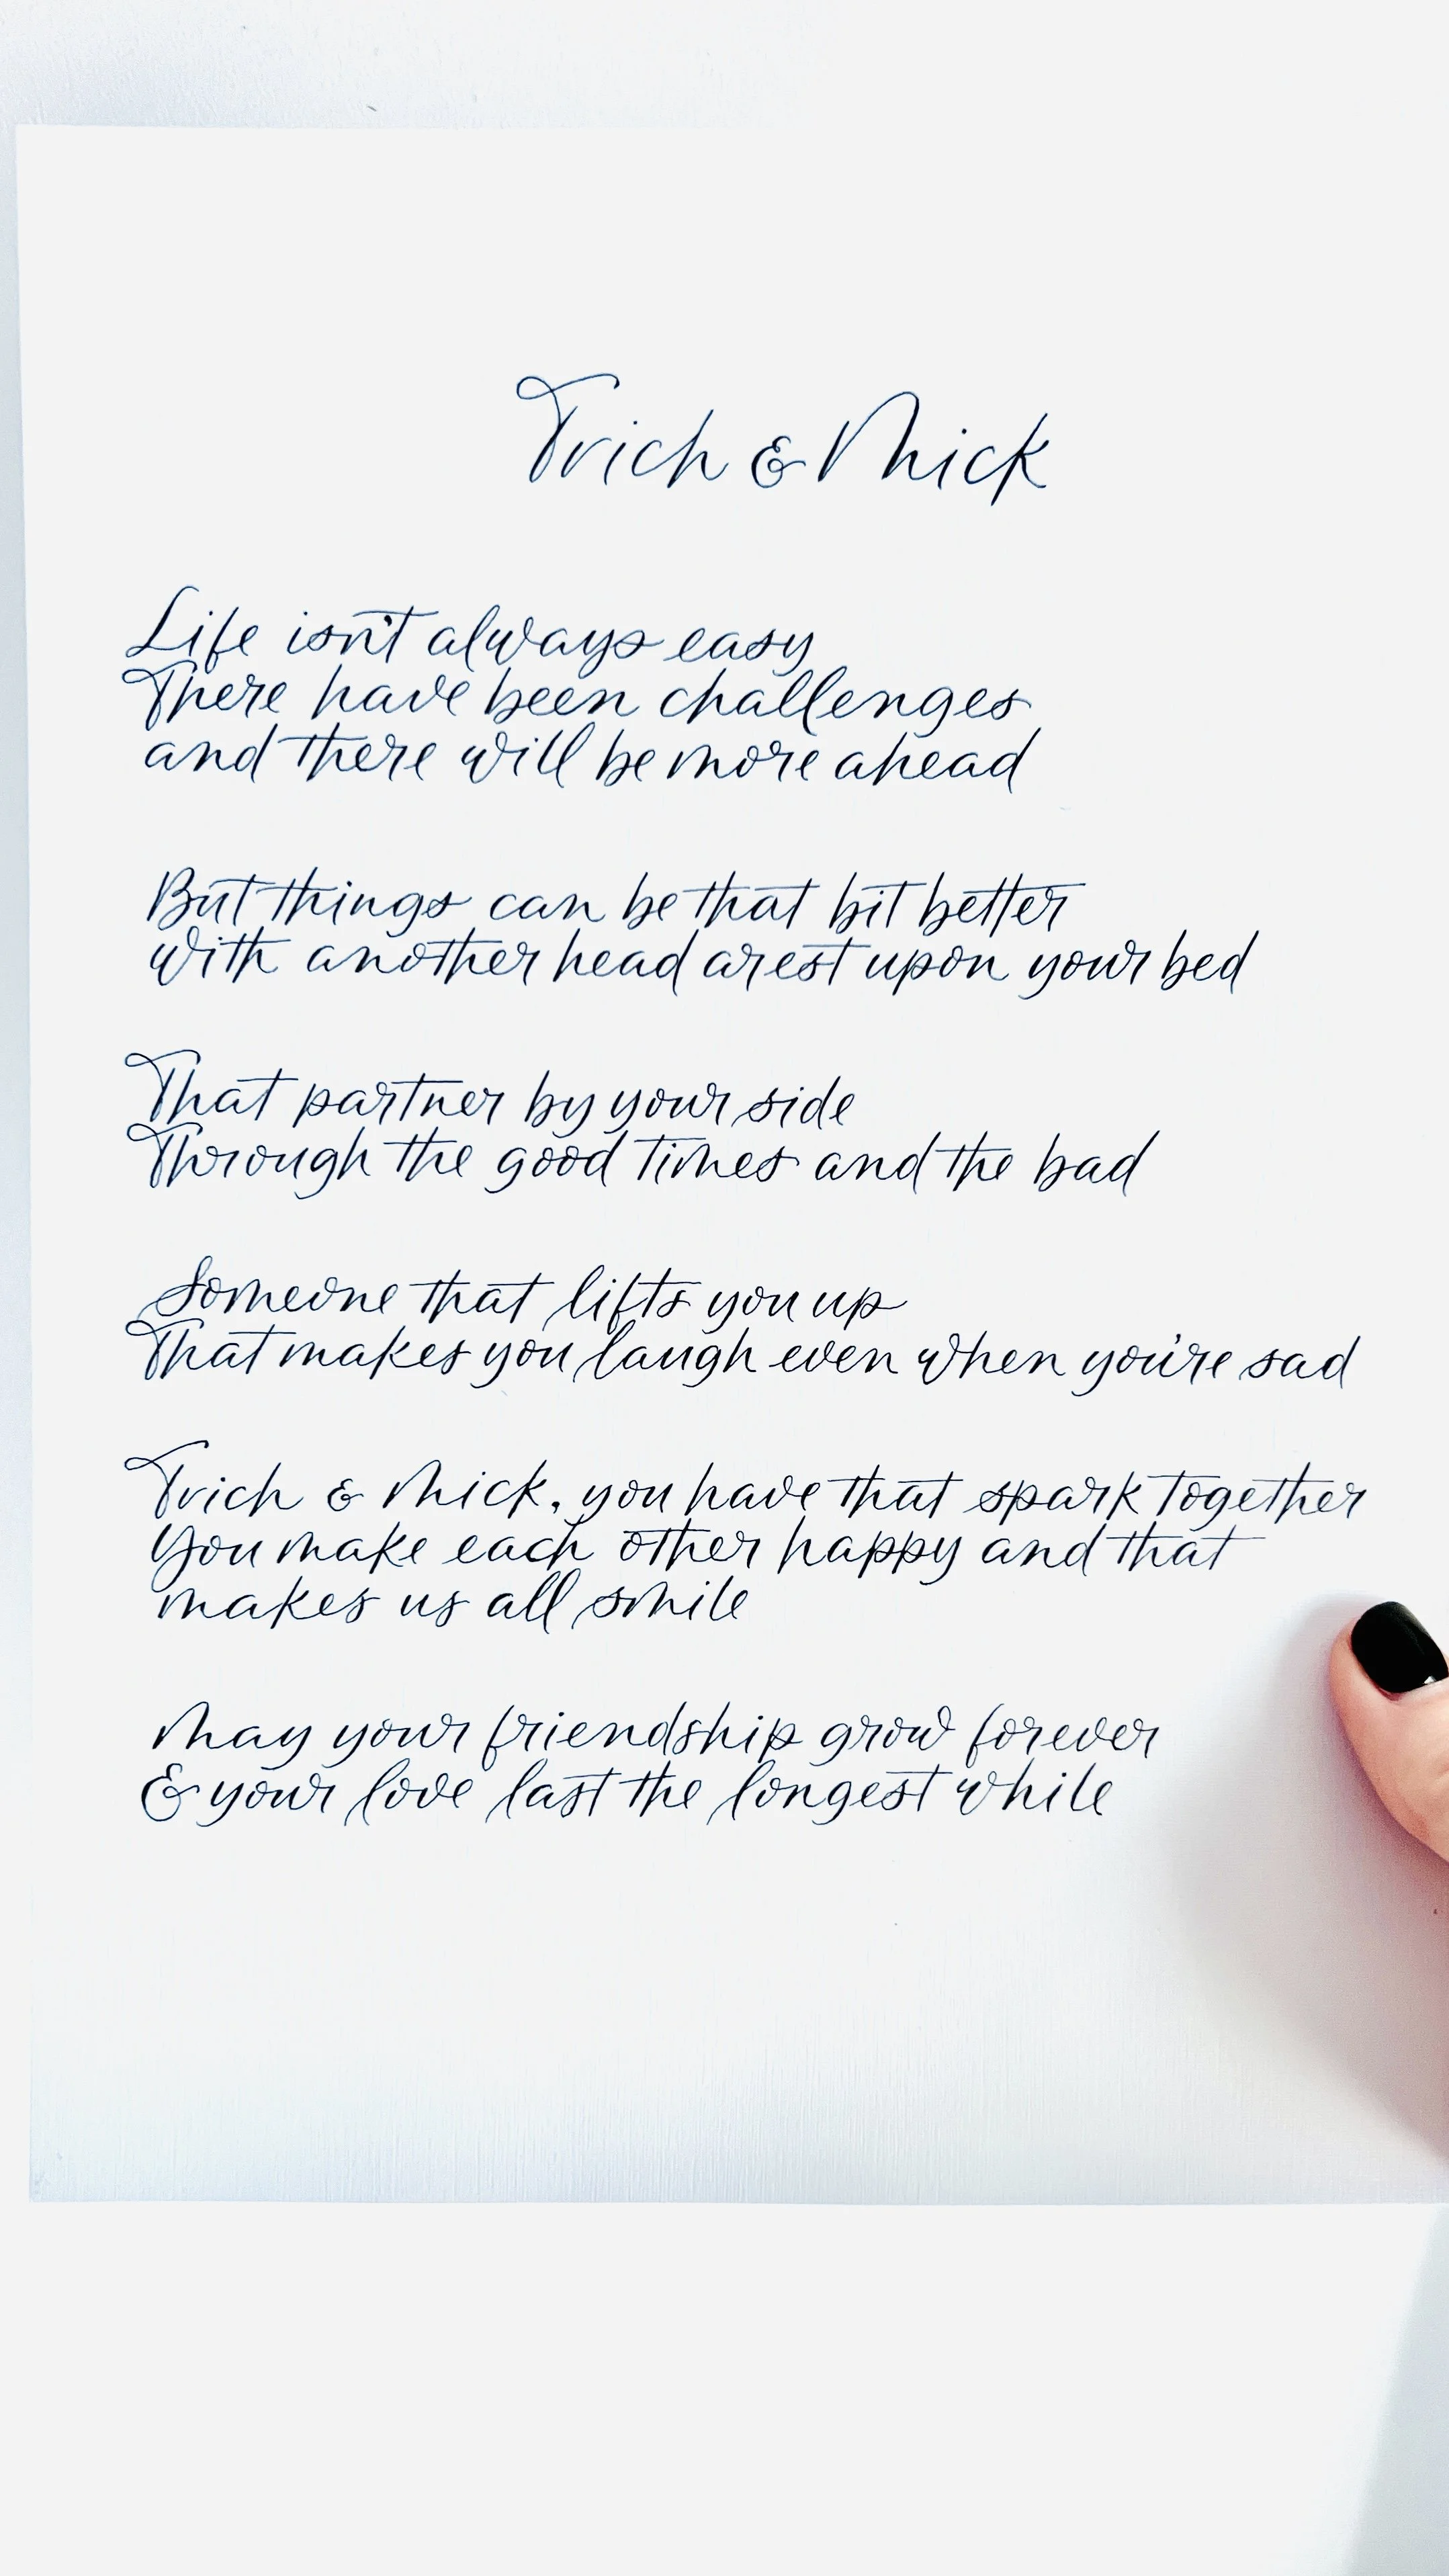 Trich & Mick
Life isn't always easy
There have been challenges
and there will be more ahead
But things can be that bit better
with another head arest upon your bed
That partner by your side
Through the good times and the bad
Someone that lifts you up
That makes you laugh even when you're sad
Trich & Mick, you have that spark together
You make each other happy and that
makes us all smile
May your friendship grow forever
& your love last the longest while